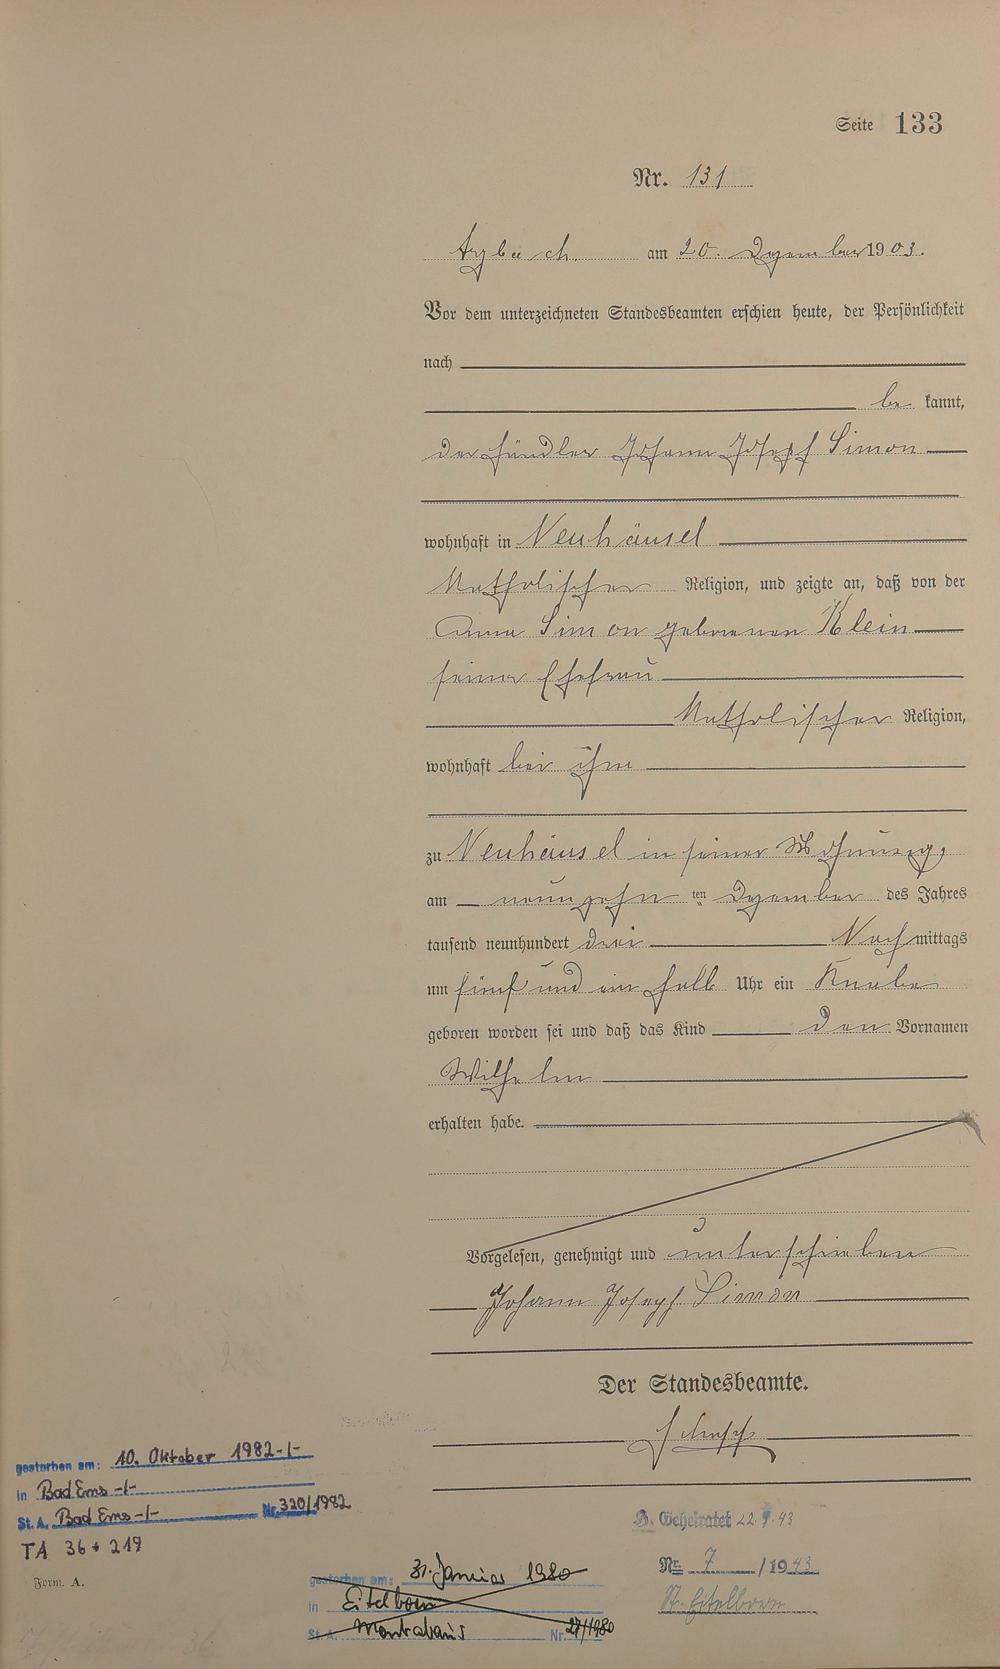 Seite 133
Nr. 131
Arzbach am 20. Dezember 1903.
Vor dem unterzeichneten Standesbeamten erschien heute, der Persönlichkeit
nach
be kannt,
der Händler Johann Josef Simon
wohnhaft in Neuhäusel
katholischer Religion, und zeigte an, daß von der
Anna Simon geborenen Klein
seiner Ehefrau
katholischer Religion,
wohnhaft bei ihm
zu Neuhäusel in seiner Wohnung,
am neunzehn ten Dezember des Jahres
tausend neunhundert drei Nach mittags
um fünf und ein halb Uhr ein Knabe
geboren worden sei und daß das Kind den Vornamen
Wilhelm
erhalten habe.
Vorgelesen, genehmigt und unterschrieben
Johann Joseph Simon
Der Standesbeamte.
gestorben am: 10. Oktober 1982-/-
in Bad Ems -/-
St. A. Bad Ems -/- Nr. 320/1982
TA 36 + 219
Form. A.
Geheiratet 22.9.43
Nr. 7 /1943
St. Eitelborn
gestorben am: 31. Januar 1980
in Eitelborn
St. A. Montabaur Nr. 27/1980